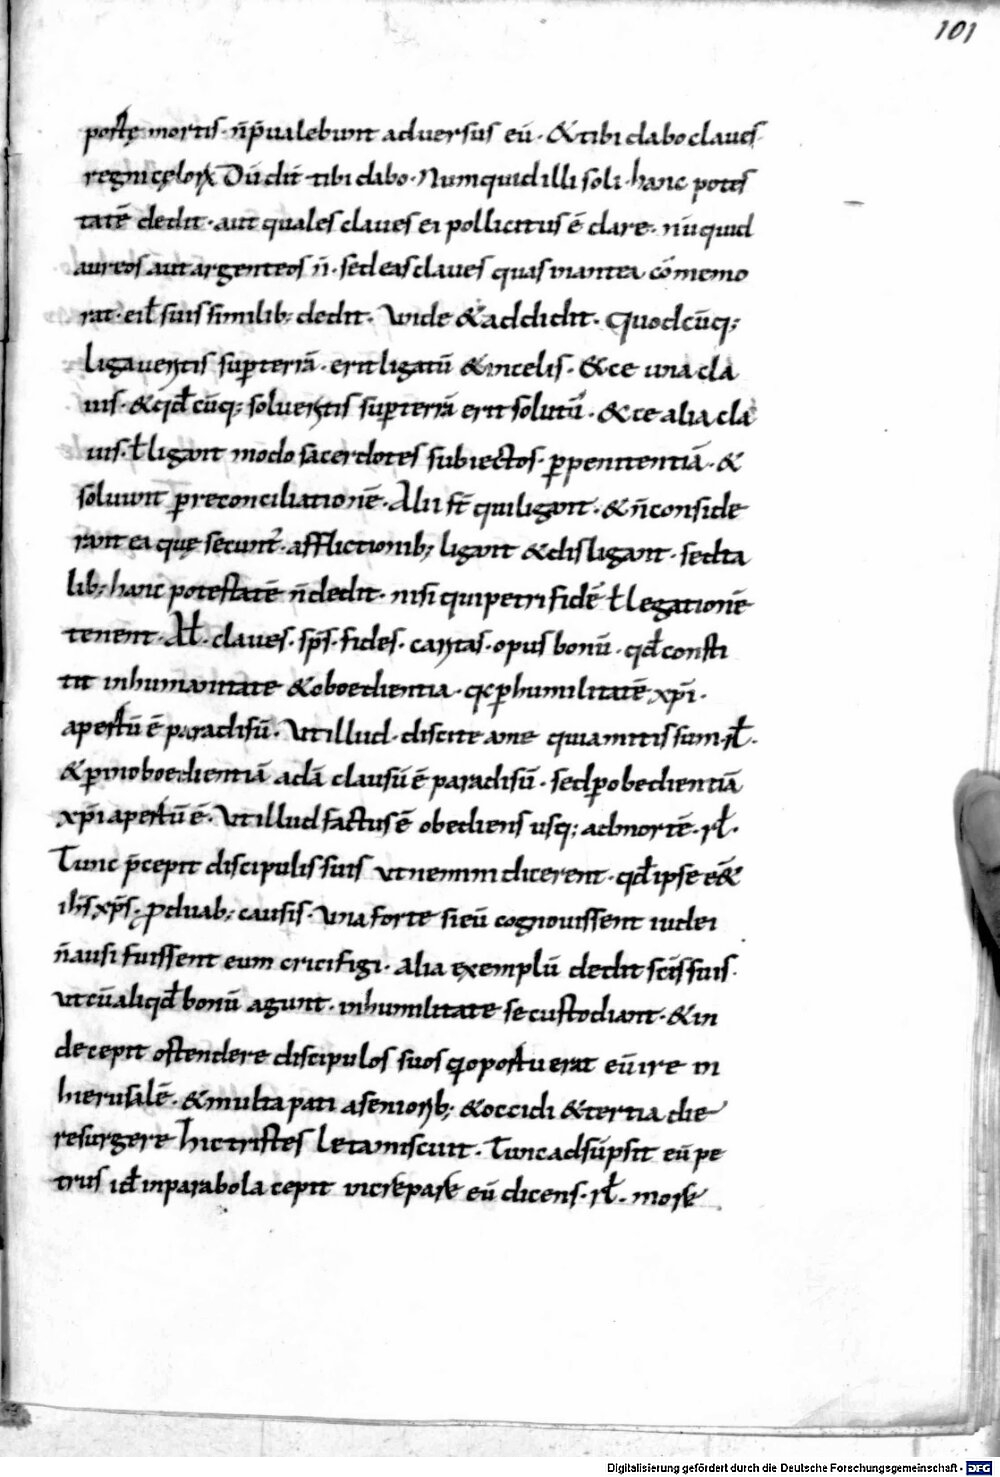 101
portę mortis · n̄ p̄ualebunt aduersus eū · & tibi dabo claues
regni cęlorꝝ Dū dix̄ tibi dabo · Numquid illi soli hanc potes
tatē dedit · aut quales claues ei pollicitus ē dare · nūquid
aureos aut argenteos n̄ · sed eas claues quas in antea cōmemo
rat · ei ł suis similib; dedit · Unde & addidit · Quodcūq;
ligaueritis sup terrā · erit ligatū & in celis · & ce una cla
uis · & qđ cūq; solueritis sup terrā erit solutū · & ce alia cla
uis · ł ligant modo sacerdotes subiectos · ꝑ penitentiā · &
soluunt ꝑ reconciliationē · Alii s̄t qui ligant · & n̄ conside
rant ea quę secunt᷑ · afflictionib; ligant & disligant · sed ta
lib; hanc potestatē n̄ dedit · nisi qui petri fidē ł legationē
tenent · Ał · claues · sp̄s · fides · caritas · opus bonū · qđ consti
tit in humanitate & oboedientia · q̄ ꝑ humilitatē xp̄i ·
apertū ē paradisū · Ut illud · discite a me quia mitis sum · rł ·
& ꝑ inoboedientiā adā clausū ē paradisū · sed ꝑ obedientiā
xp̄i apertū ē · Ut illud factus ē obediens usq; ad mortē · rł ·
Tunc p̄cepit discipulis suis ut nemini dicerent · qđ ipse eēt
ih̄s xp̄s · ꝓ duab; causis · Una forte si eū cognouissent iudei
n̄ ausi fuissent eum cricifigi · Alia exemplū dedit sc̄is suis ·
ut cū aliqđ bonū agunt · in humilitate se custodiant · & in
de cepit ostendere discipulos suos q̄ oportuerat eū ire in
hierusalē · & multa pati a seniorib; & occidi & tertia die
resurgere Hic tristes leta miscuit · Tunc adsūpsit eū pe
trus iđ in parabola cepit increpare eū dicens · rł · more
Digitalisierung gefördert durch die Deutsche Forschungsgemeinschaft - DFG